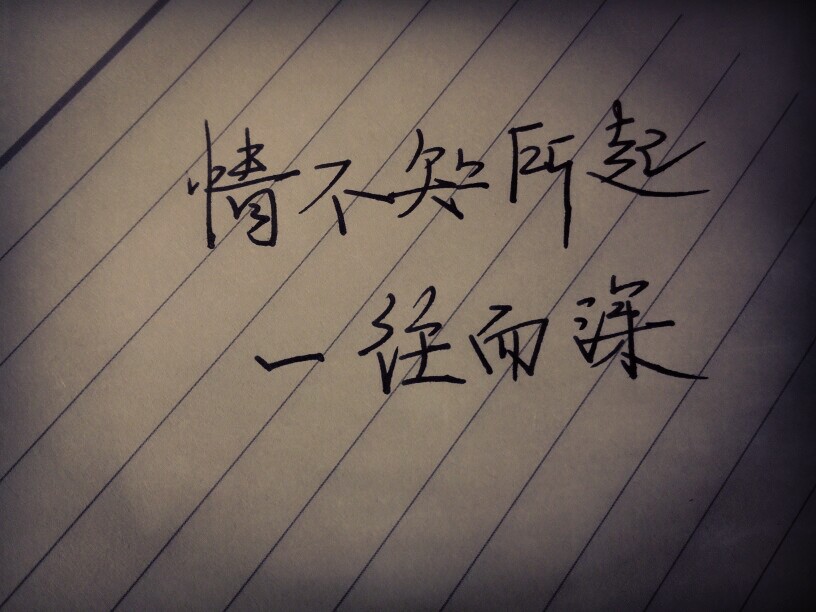 情不知所起
一径而深